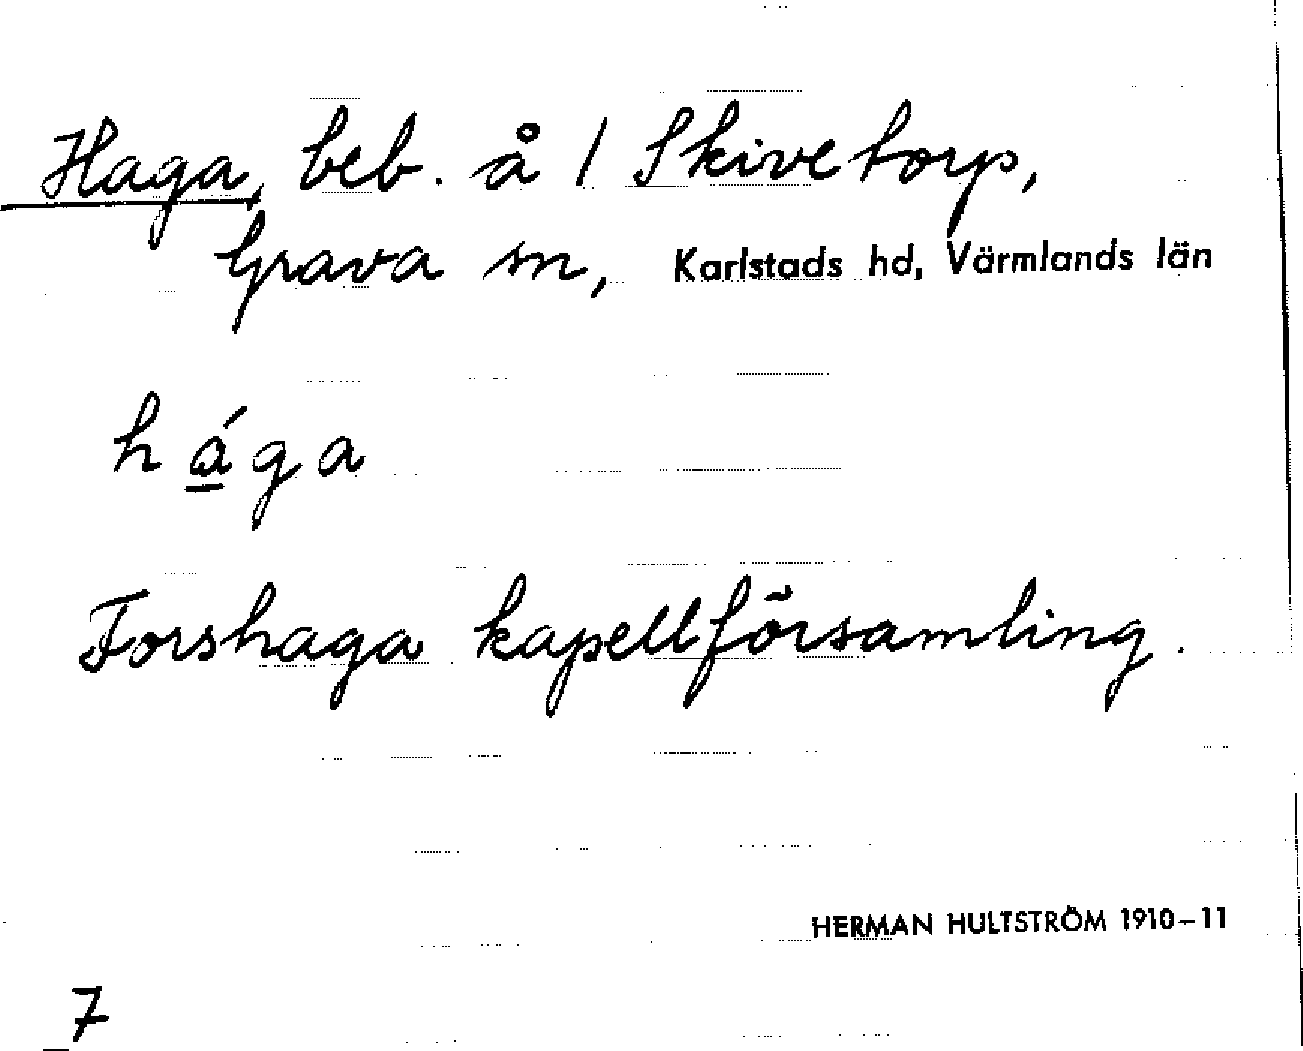 Haga, beb. å / Skivetorp,
Grava sn, Karlstads hd, Värmlands län
hága
Forshaga kapellförsamling.
HERMAN HULTSTRÖM 1910–11
7